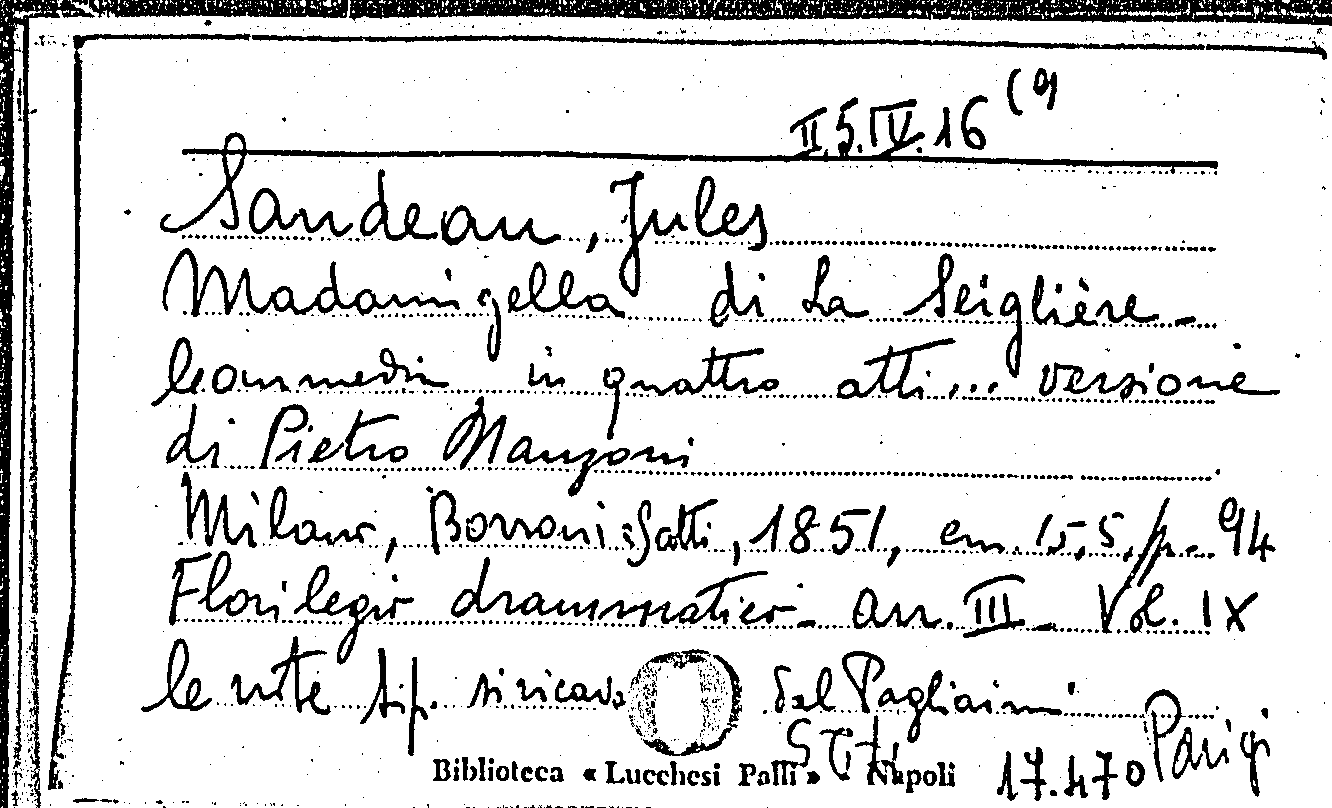 II.5.IV.16 (9
Sandeau, Jules
Madamigella di La Seiglière -
Commedia in quattro atti... versione
di Pietro Manzoni
Milano, Borroni e Scotti, 1851, cm. 15,5, p. 94
Florilegio drammatico - an. III - Vol. IX
le note tip. si ricava dal Pagliaini
Biblioteca « Lucchesi Palli » Napoli 17.470 Parigi